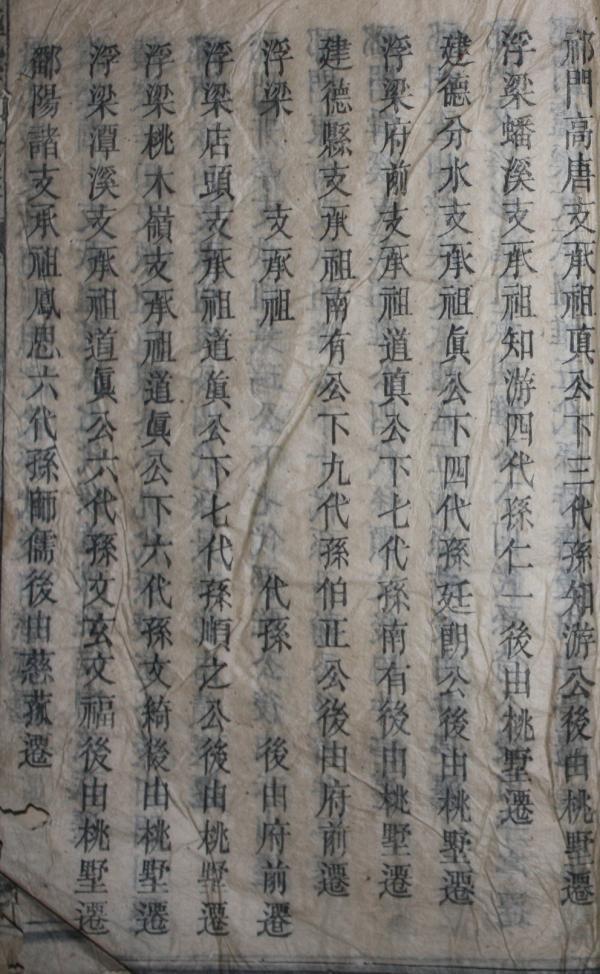 祁門高唐支承祖眞公下三代孫知游公後由桃墅遷
浮梁蟠溪支承祖知游四代孫仁一後由桃墅遷
建德分水支承祖眞公下四代孫廷朗公後由桃墅遷
浮梁府前支承祖道眞公下七代孫南有後由桃墅遷
建德縣支承祖南有公下九代孫伯正公後由府前遷
浮梁　支承祖　代孫　後由府前遷
浮梁店頭支承祖道眞公下七代孫順之公後由桃墅遷
浮梁桃木嶺支承祖道眞公下六代孫文綺後由桃墅遷
浮梁潭溪支承祖道眞公六代孫文玄文福後由桃墅遷
鄱陽諸支承祖鳳思六代孫師儒後由慈菰遷